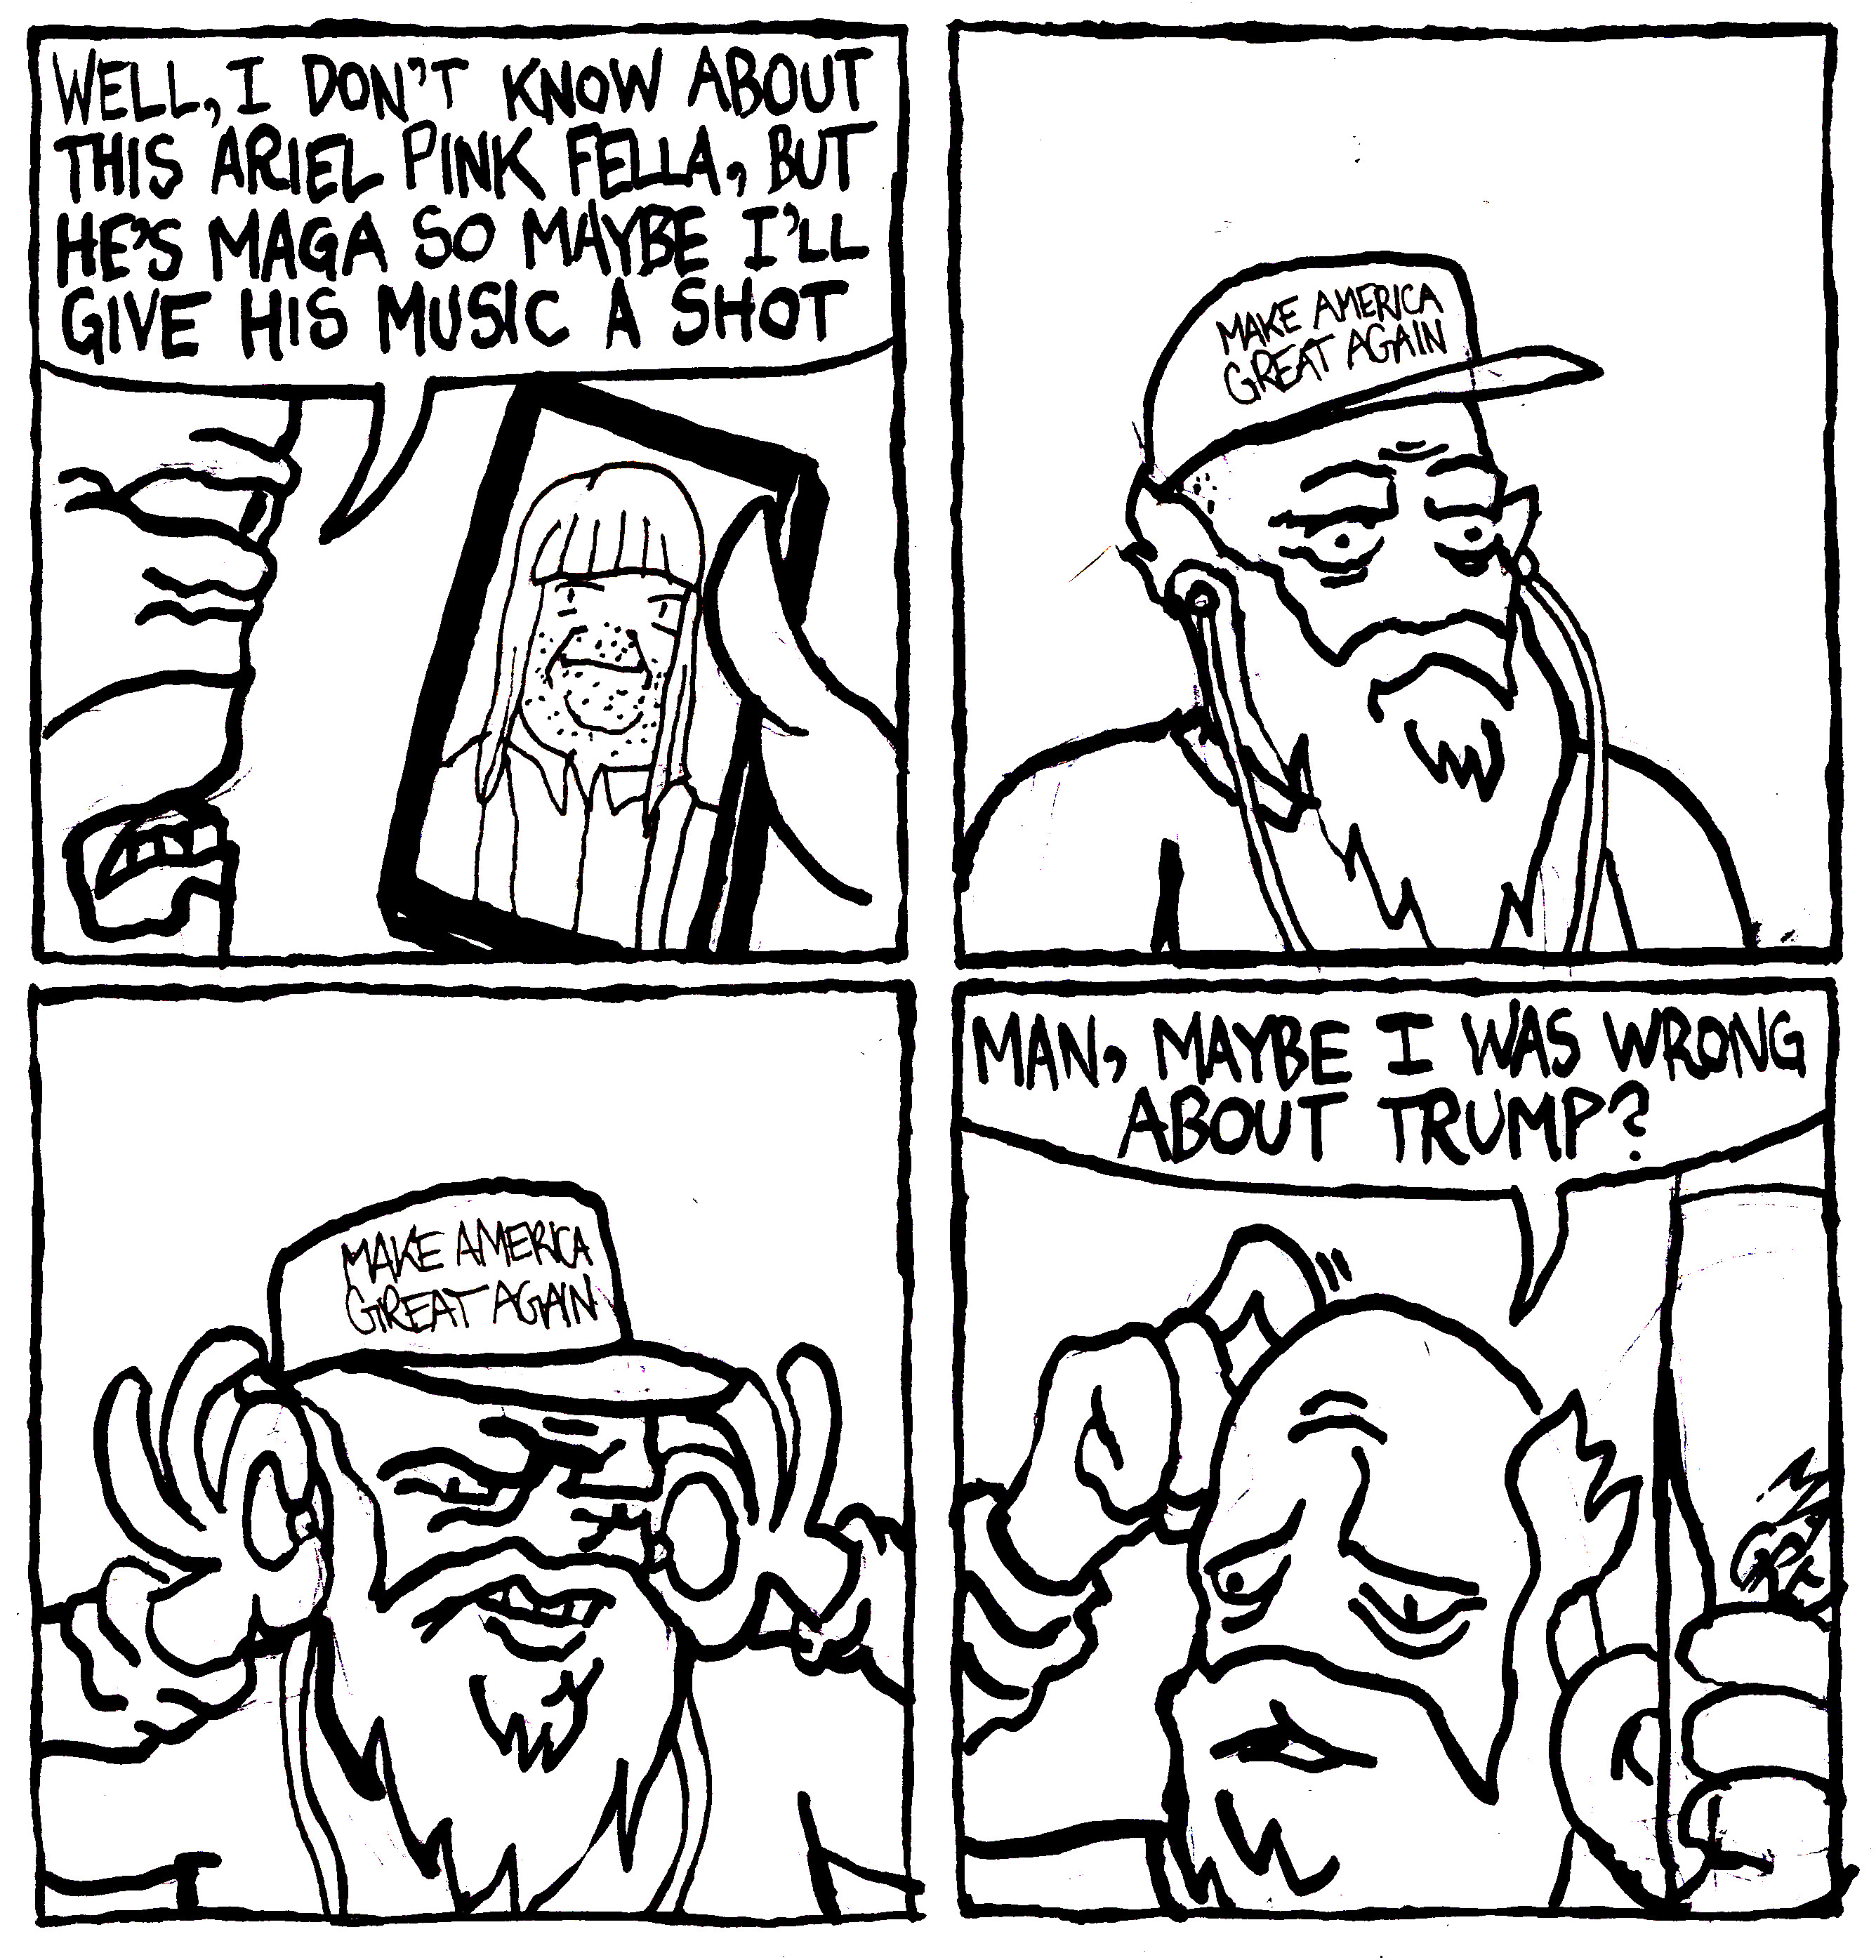 WELL, I DON'T KNOW ABOUT
THIS ARIEL PINK FELLA, BUT
HE'S MAGA SO MAYBE I'LL
GIVE HIS MUSIC A SHOT
MAKE AMERICA
GREAT AGAIN
MAKE AMERICA
GREAT AGAIN
MAN, MAYBE I WAS WRONG
ABOUT TRUMP?